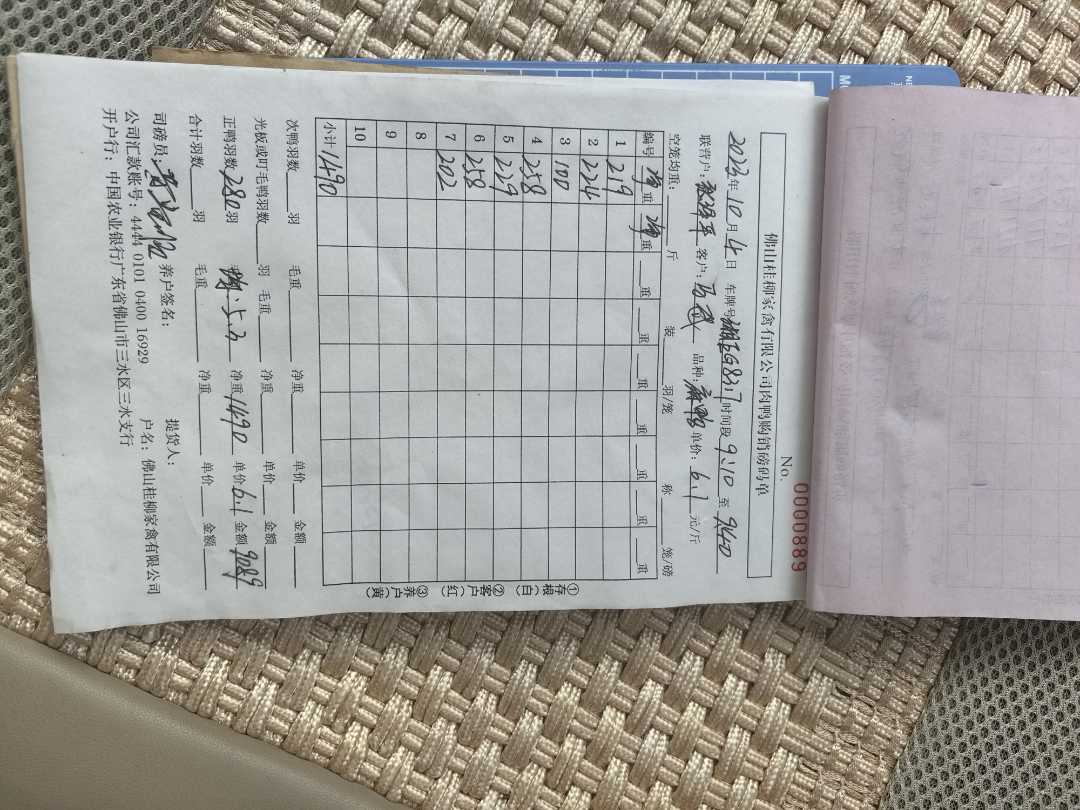 No. 0000889
佛山桂柳家禽有限公司肉鸭购销磅码单
2023年10月4日 车牌号 时间段9:10至9:40
联营户: 客户: 品种:麻鸭 单价:6.1元/斤
空笼均重: 斤 装 羽/笼 称 笼/磅
编号 净重 净重 重 重 重 重 重 重 重
1 219
2 224
3 100
4 258
5 229
6 258
7 202
8
9
10
小计 1490
①存根(白) ②客户(红) ③养户(黄)
次鸭羽数 羽 毛重 净重 单价 金额
光板或叮毛鸭羽数 羽 毛重 净重 单价 金额
正鸭羽数280羽 :5.3 净重1490 单价6.1 金额9089
合计羽数 羽 毛重 净重 单价 金额
司磅员: 养户签名: 提货人:
公司汇款账号:4444 0101 0400 16929 户名:佛山桂柳家禽有限公司
开户行:中国农业银行广东省佛山市三水区三水支行